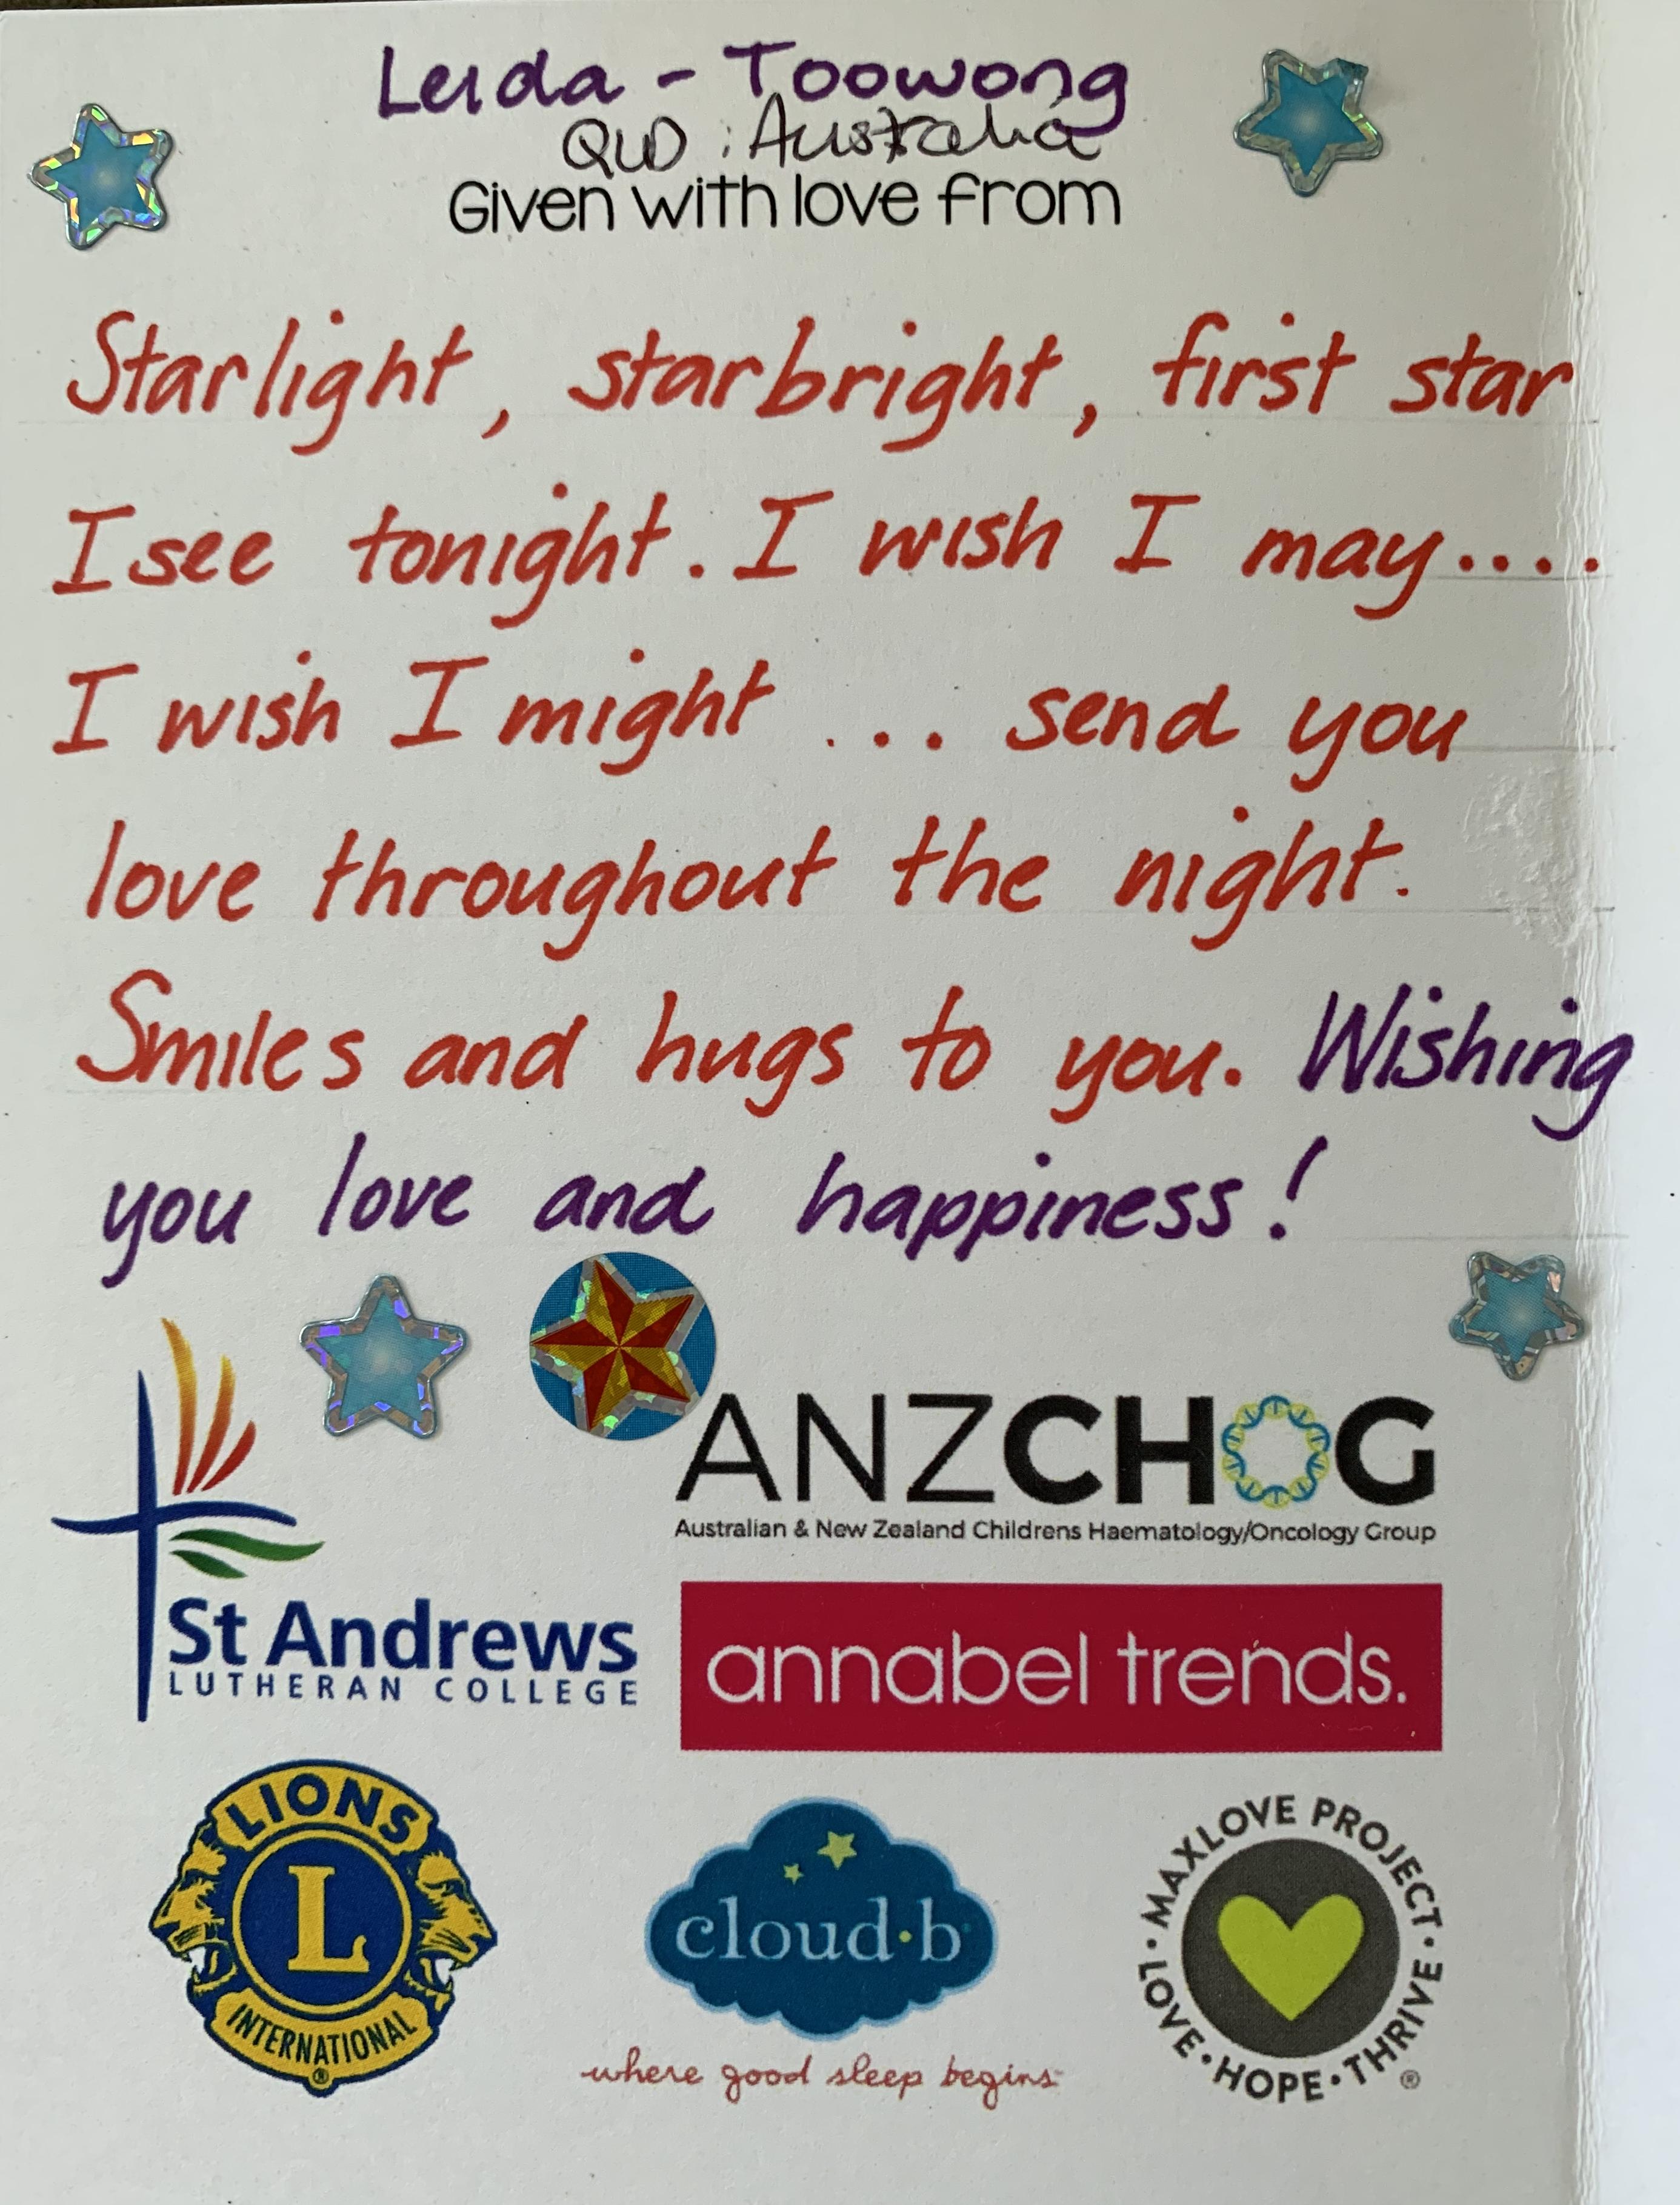 Leida - Toowong
QLD : Australia
Given with love from
Starlight, starbright, first star
I see tonight. I wish I may....
I wish I might ... send you
love throughout the night.
Smiles and hugs to you. Wishing
you love and happiness!
ANZCHOG
Australian & New Zealand Childrens Haematology/Oncology Group
St Andrews
LUTHERAN COLLEGE
annabel trends.
LIONS
L
INTERNATIONAL
®
cloud·b
where good sleep begins™
MAXLOVE PROJECT · LOVE · HOPE · THRIVE ·
®